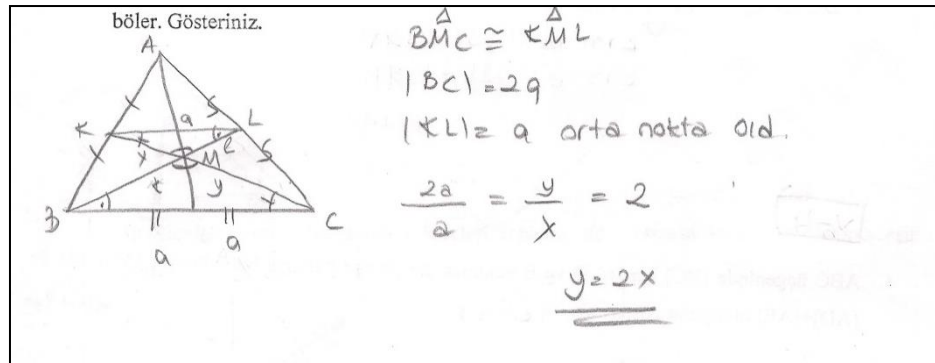 böler. Gösteriniz.
A
K
L
M
B
C
a
S
S
x
l
t
y
a
a
BMC ≅ KML
|BC| = 2a
|KL| = a orta nokta old.
2a/a = y/x = 2
y = 2x